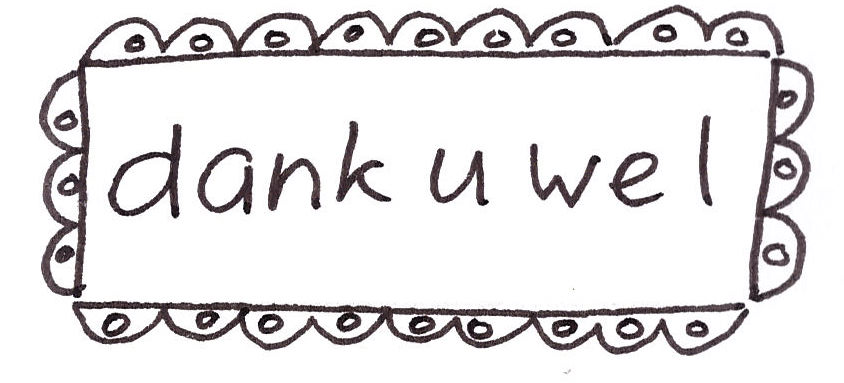 dank u wel